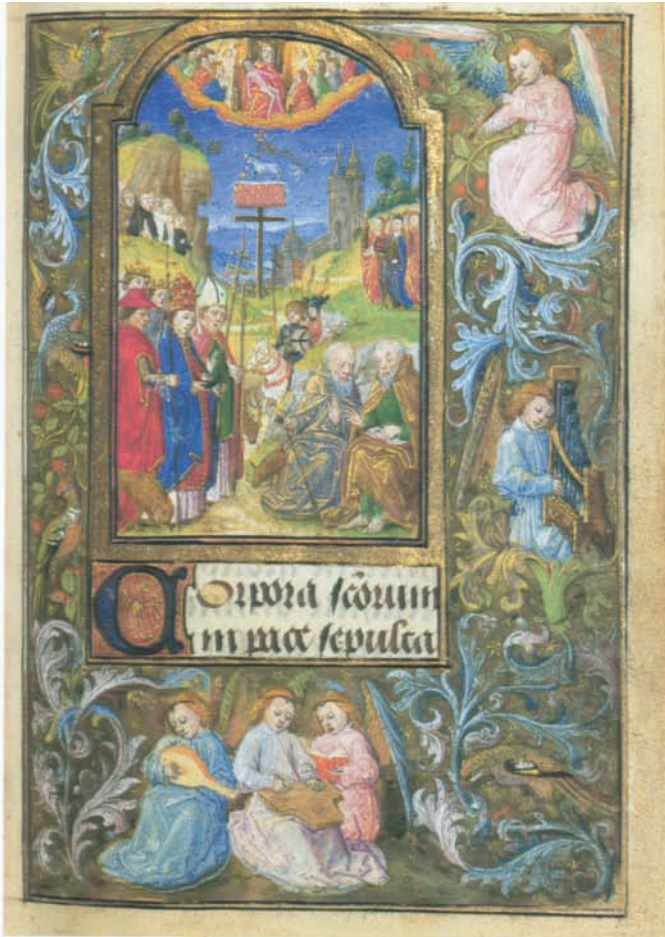 Corpora scōrum
in pace sepulta